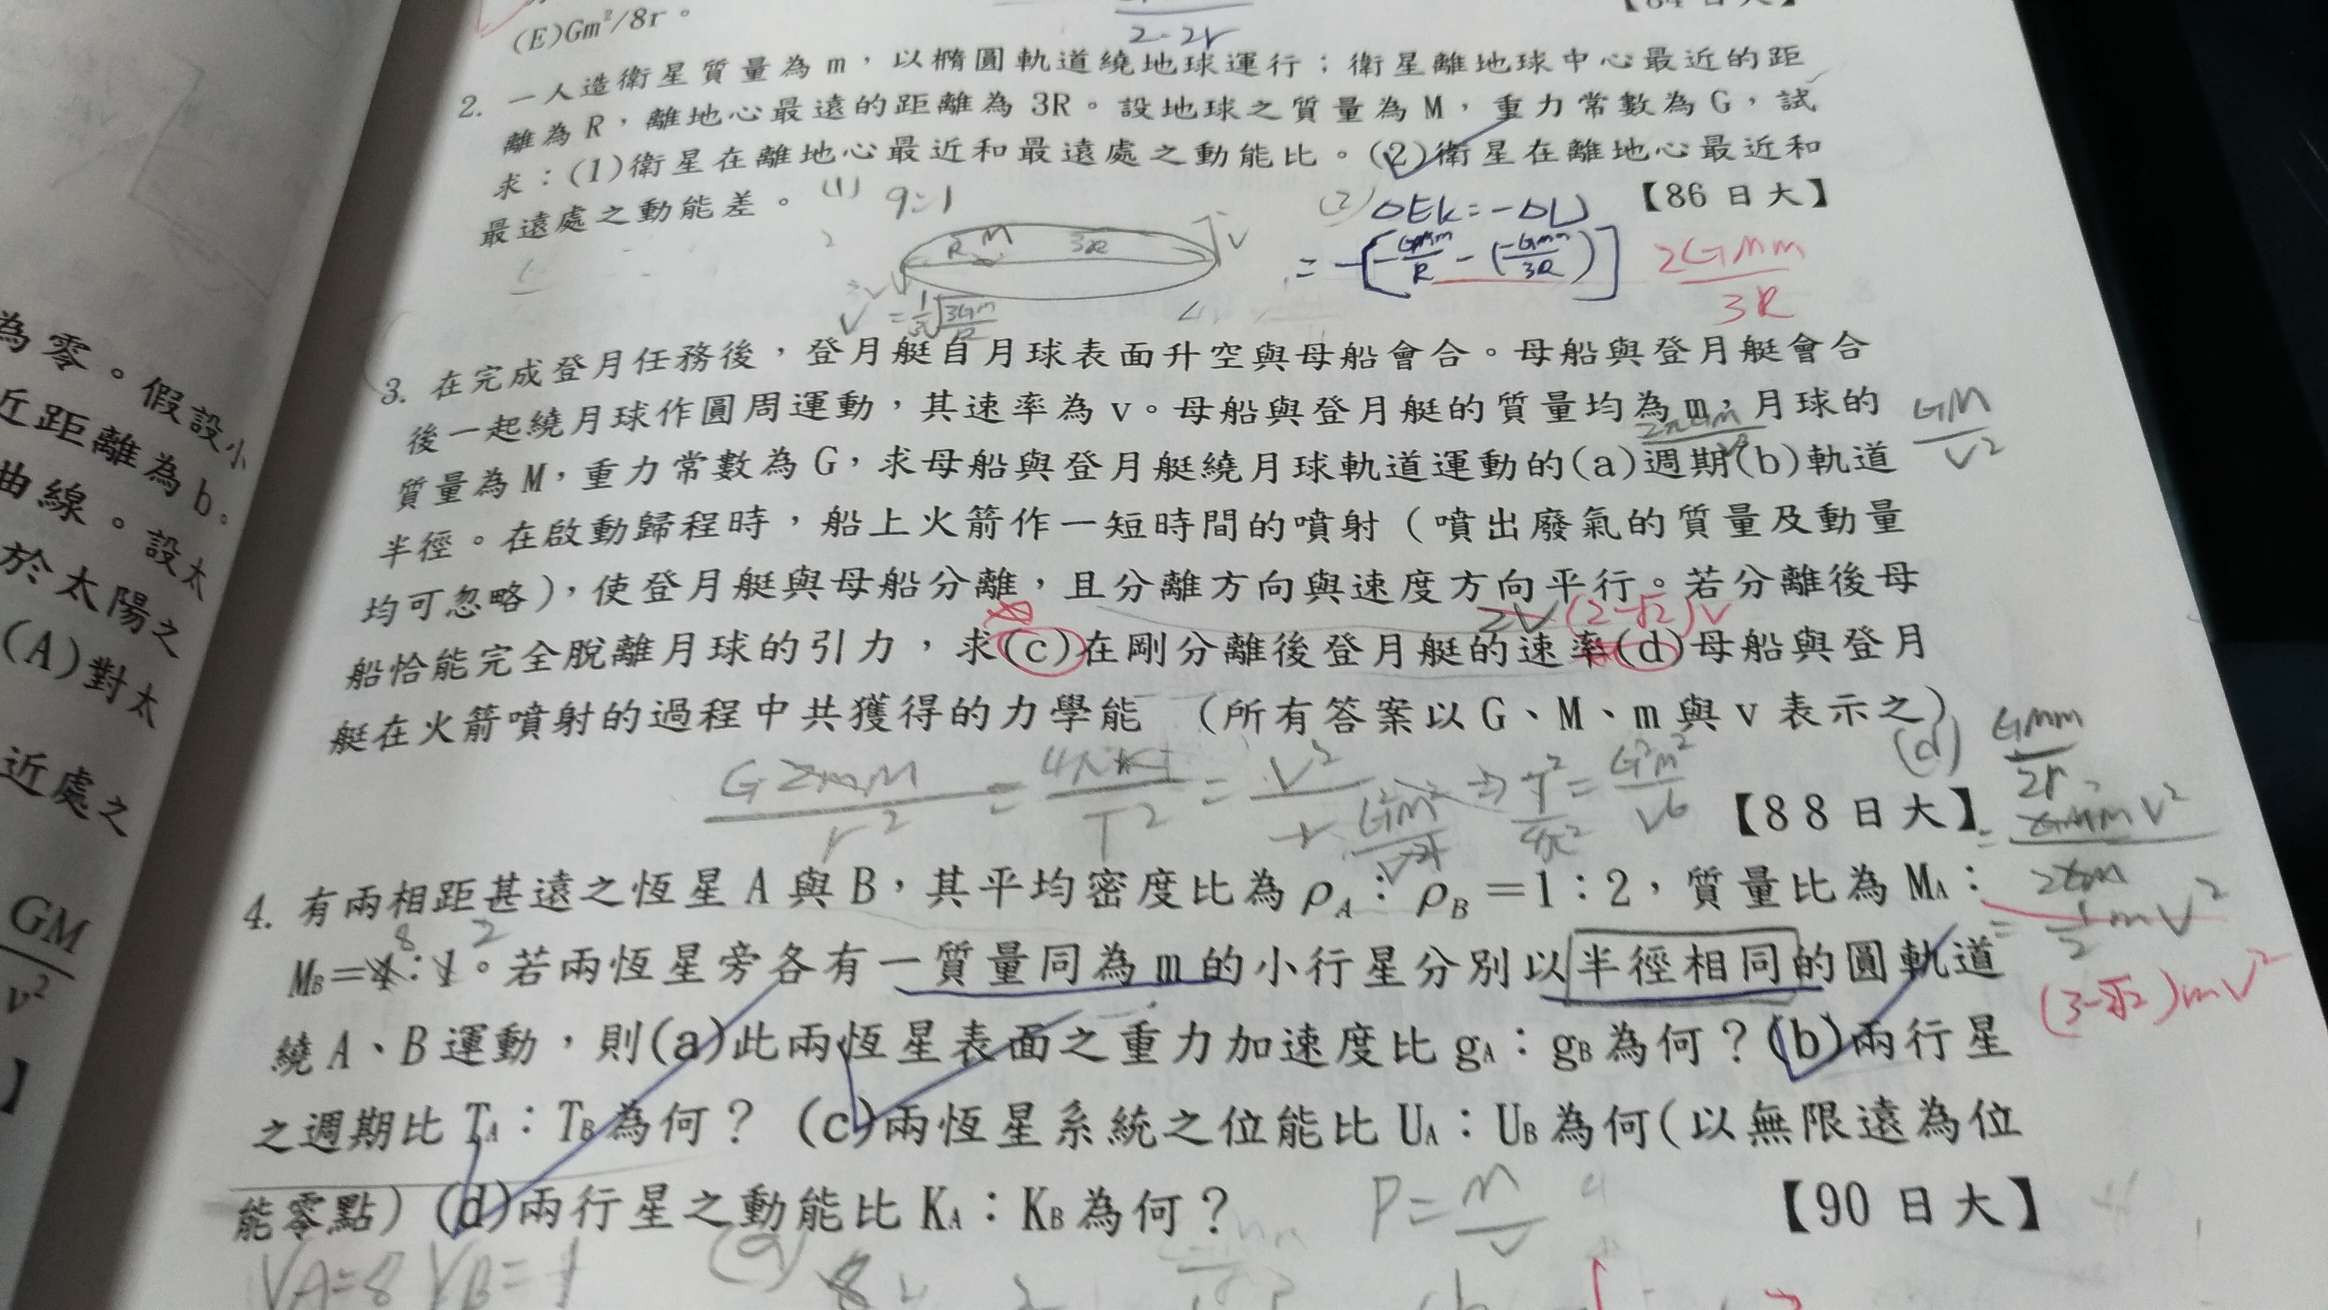 (E)Gm²/8r。
2·2r
2. 一人造衛星質量為 m，以橢圓軌道繞地球運行；衛星離地球中心最近的距
離為 R，離地心最遠的距離為 3R。設地球之質量為 M，重力常數為 G，試
求：(1)衛星在離地心最近和最遠處之動能比。(2)衛星在離地心最近和
最遠處之動能差。
【86 日大】
(1) 9:1
(2) ΔEk=-ΔU
R M 3R V
= -[-GMm/R - (-GMm/3R)]
2GMm/3R
3. 在完成登月任務後，登月艇自月球表面升空與母船會合。母船與登月艇會合
後一起繞月球作圓周運動，其速率為 v。母船與登月艇的質量均為 m，月球的
質量為 M，重力常數為 G，求母船與登月艇繞月球軌道運動的(a)週期(b)軌道
GM/V²
半徑。在啟動歸程時，船上火箭作一短時間的噴射（噴出廢氣的質量及動量
均可忽略），使登月艇與母船分離，且分離方向與速度方向平行。若分離後母
(2-√2)V
船恰能完全脫離月球的引力，求(c)在剛分離後登月艇的速率(d)母船與登月
艇在火箭噴射的過程中共獲得的力學能 （所有答案以 G、M、m 與 v 表示之）
【88 日大】
(d) GMm/2r
= ½mV²
(3-2√2)mV²
4. 有兩相距甚遠之恆星 A 與 B，其平均密度比為 ρA：ρB＝1：2，質量比為 MA：
8 2
MB=4：1。若兩恆星旁各有一質量同為 m 的小行星分別以半徑相同的圓軌道
繞 A、B 運動，則(a)此兩恆星表面之重力加速度比 gA：gB 為何？(b)兩行星
之週期比 TA：TB 為何？ (c)兩恆星系統之位能比 UA：UB 為何(以無限遠為位
能零點) (d)兩行星之動能比 KA：KB 為何？
【90 日大】
P=m/V
VA=8 VB=1
(a)
為零。假設小
近距離為 b。
曲線。設太
於太陽之
(A)對太
近處之
GM/v²
】